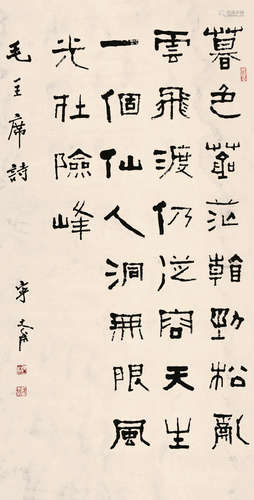 暮色蒼茫看勁松亂
雲飛渡仍從容天生
一個仙人洞無限風
光在險峰
毛主席詩